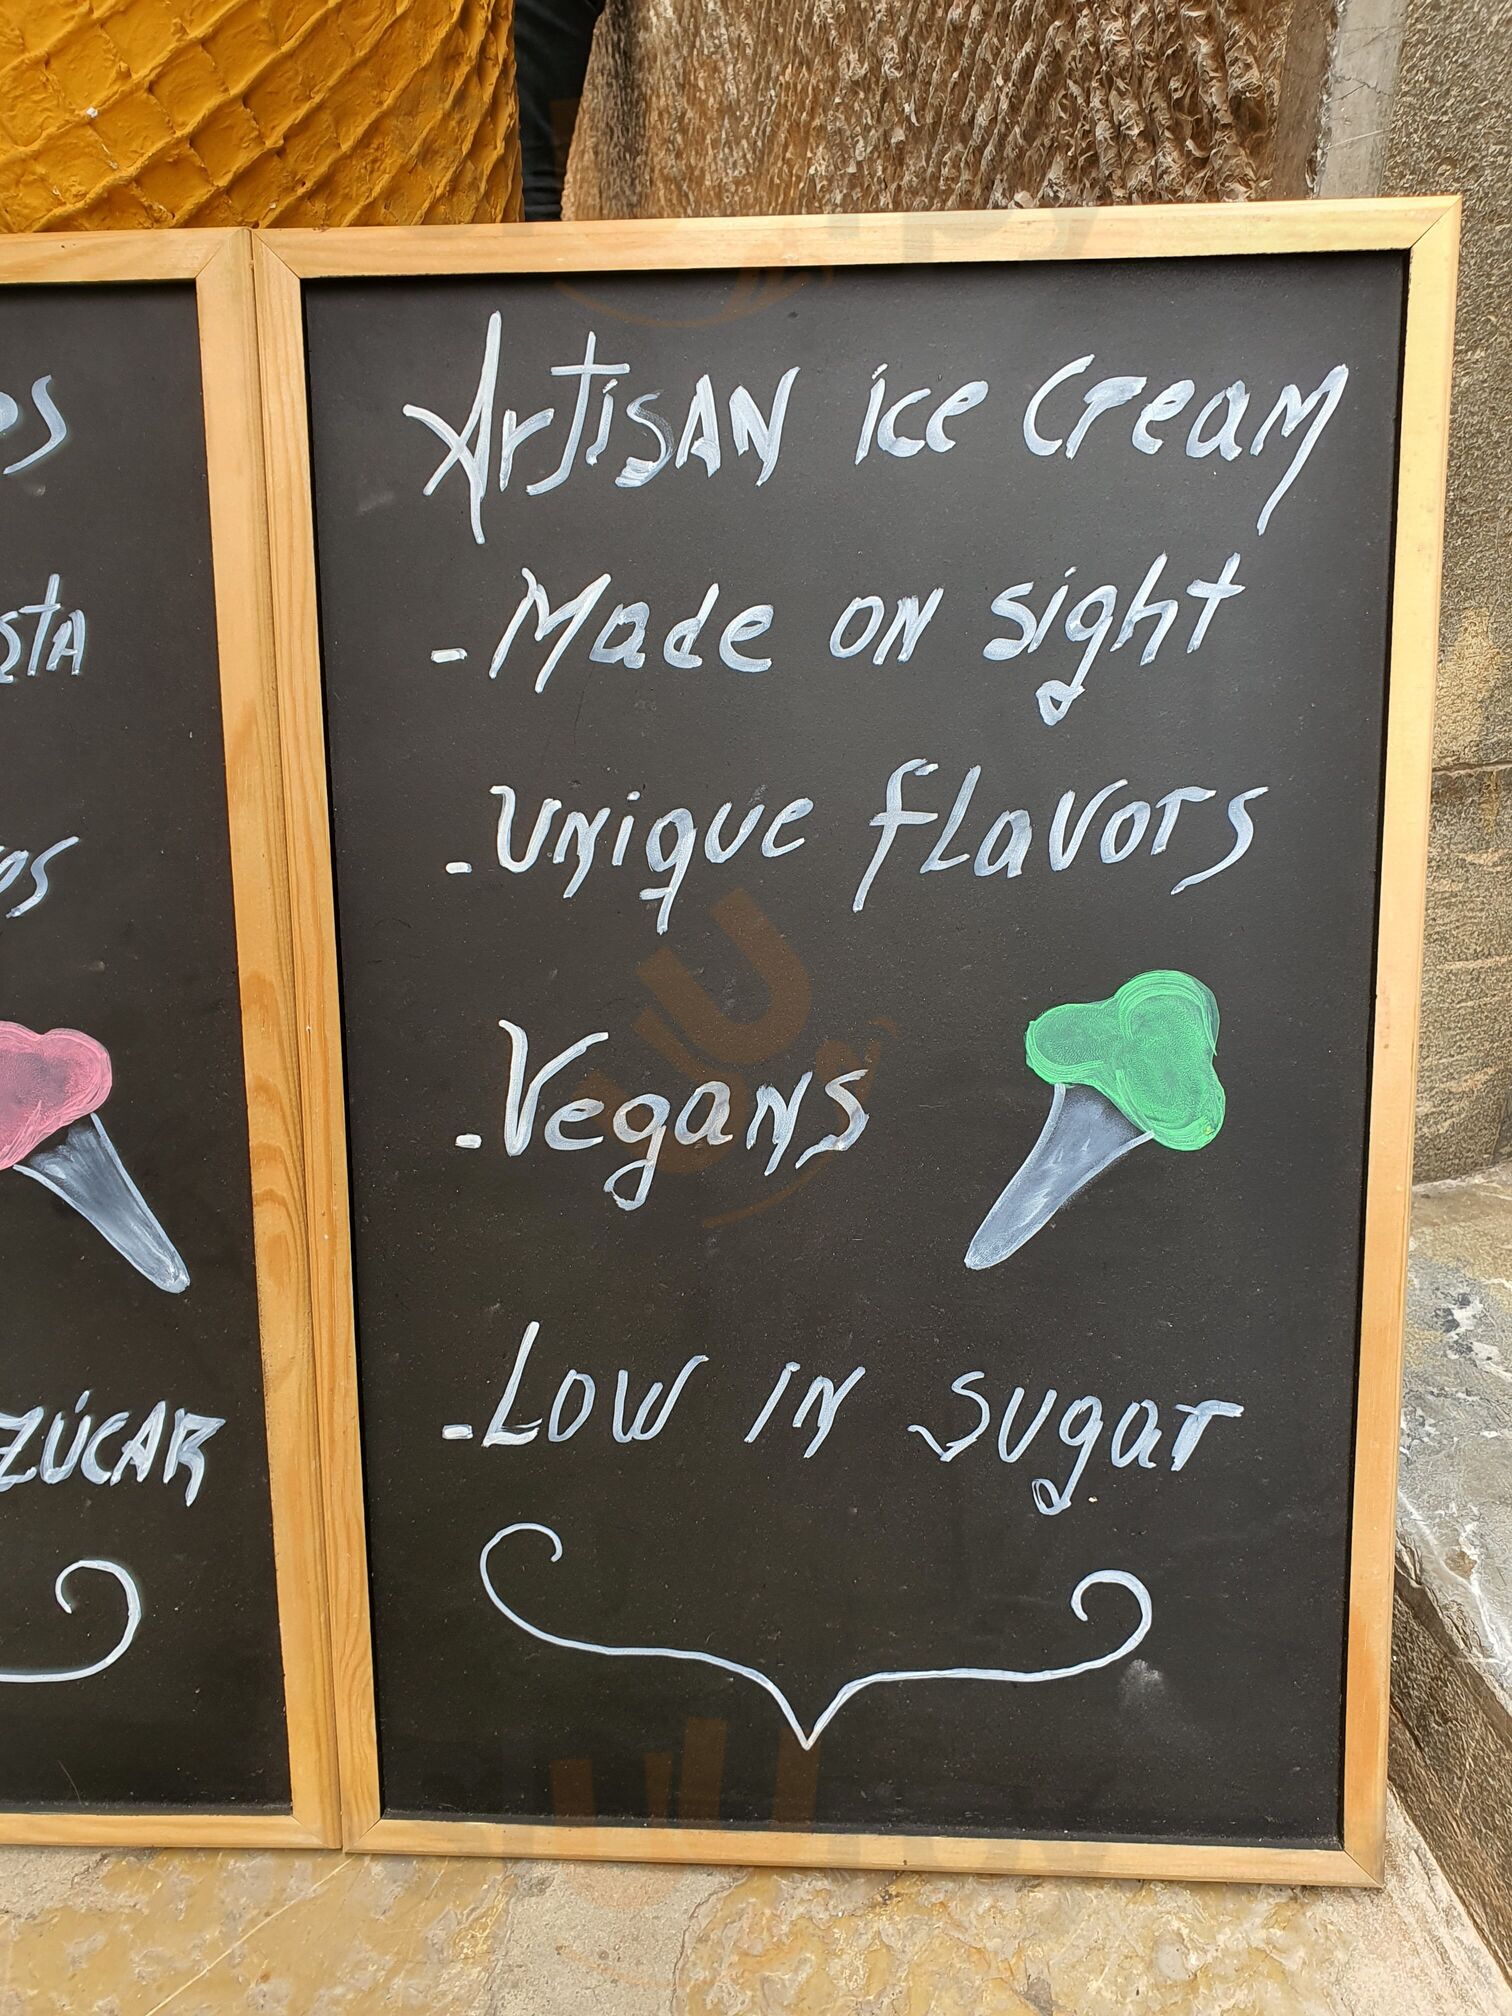 Artisan ice cream
- Made on sight
- Unique flavors
- Vegans
- Low in sugar